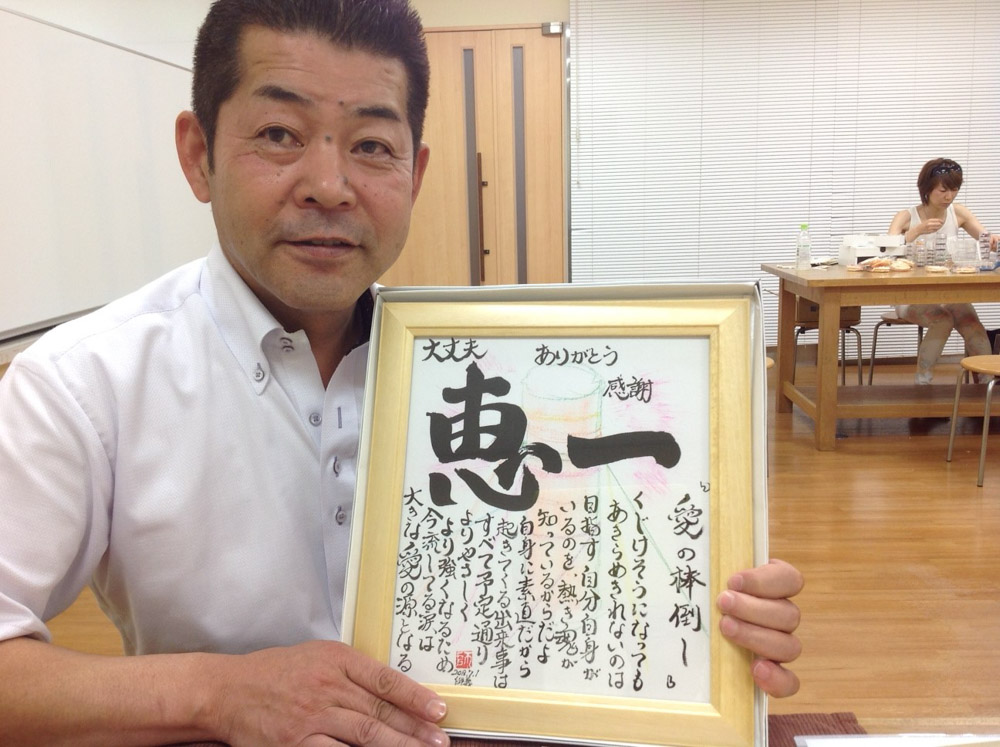 大丈夫
ありがとう
感謝
恵一
〝愛の棒倒し〟
くじけそうになっても
あきらめきれないのは
目指す自分自身が
いるのを熱き魂が
知っているからだよ
自身に素直だから
起きてくる出来事は
すべて予定通り
よりやさしく
より強くなるため
今流してる涙は
大きな愛の源となる